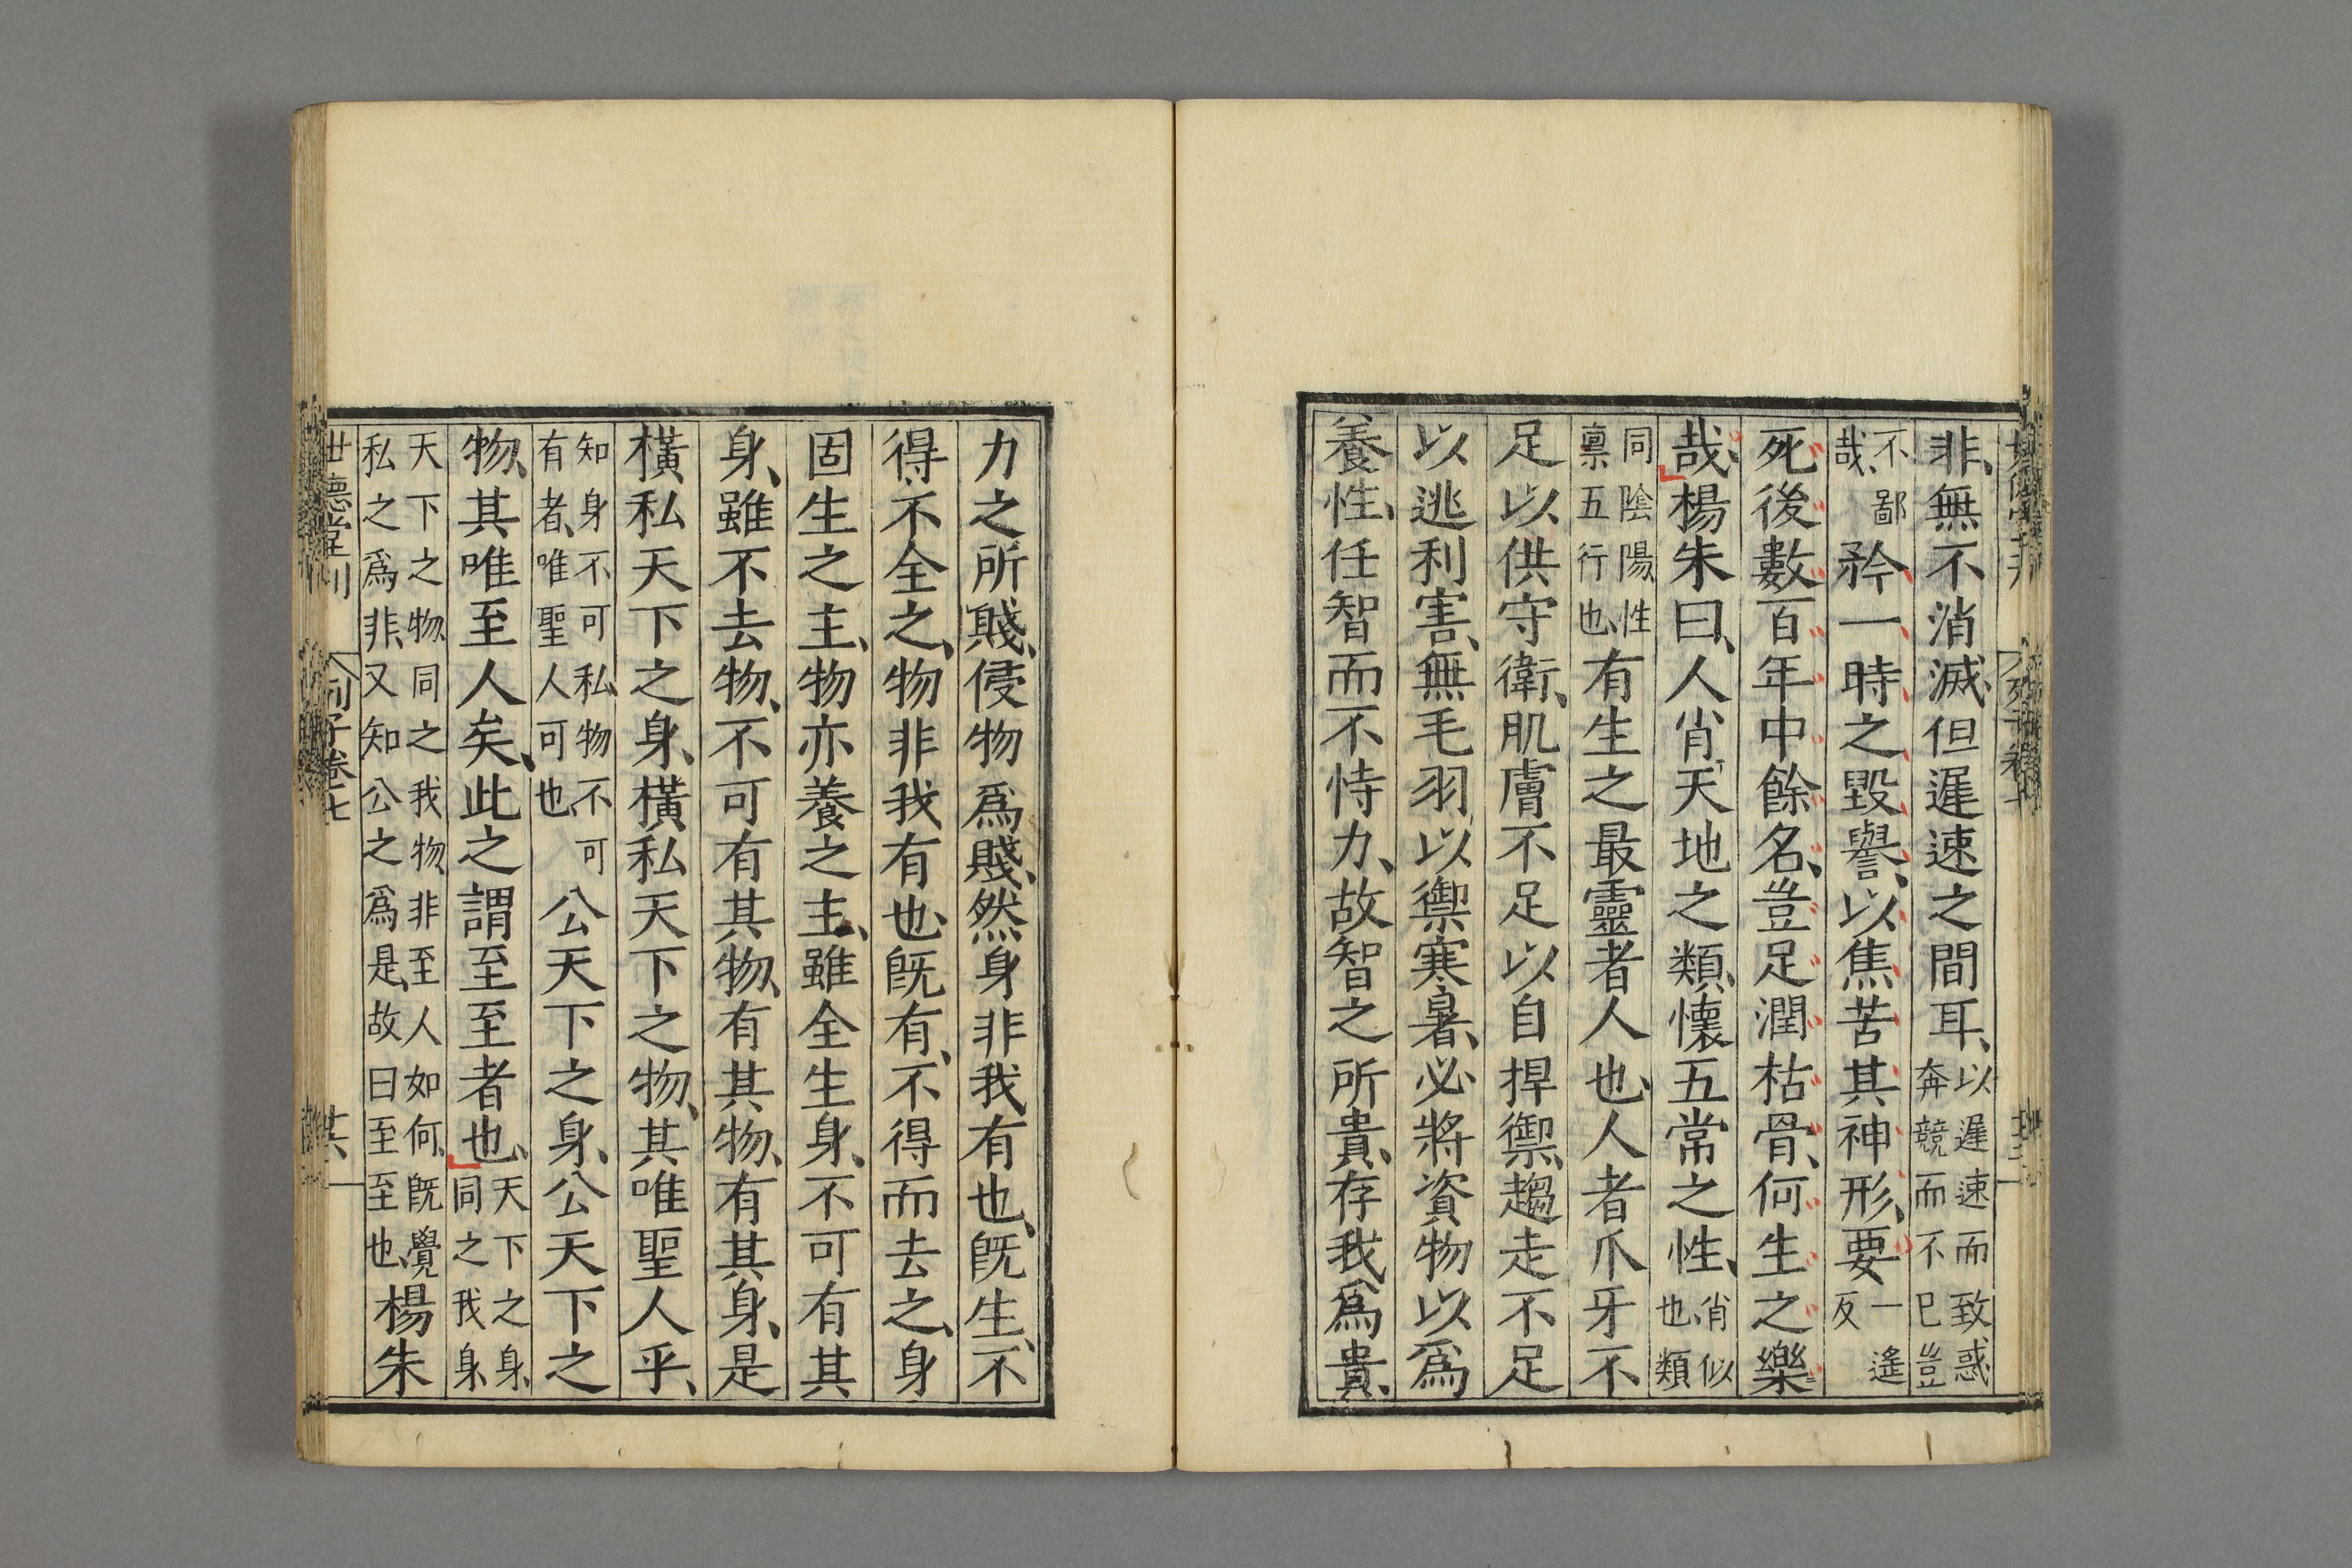 非、無不消滅、但遲速之間耳、以遲速而致惑奔競而不已豈
不鄙哉、矜一時之毀譽、以焦苦其神形、要一遙反
死後數百年中餘名、豈足潤枯骨、何生之樂
哉、楊朱曰、人肖天地之類、懷五常之性、肖似也、類
同陰陽性稟五行也、有生之最靈者人也、人者爪牙不
足以供守衛、肌膚不足以自捍禦、趨走不足
以逃利害、無毛羽以禦寒暑、必將資物以爲
養性、任智而不恃力、故智之所貴、存我爲貴、
力之所賤、侵物爲賤、然身非我有也、既生、不
得不全之、物非我有也、既有、不得而去之、身
固生之主、物亦養之主、雖全生身、不可有其
身、雖不去物、不可有其物、有其物、有其身、是
橫私天下之身、橫私天下之物、其唯聖人乎、
知身不可私物不可有者、唯聖人可也可公天下之身、公天下之
物、其唯至人矣、此之謂至至者也、天下之身、同之我身、
天下之物、同之我物、非至人如何、既覺私之爲非、又知公之爲是、故曰至至也、楊朱
世德堂刊 列子卷七 廿六